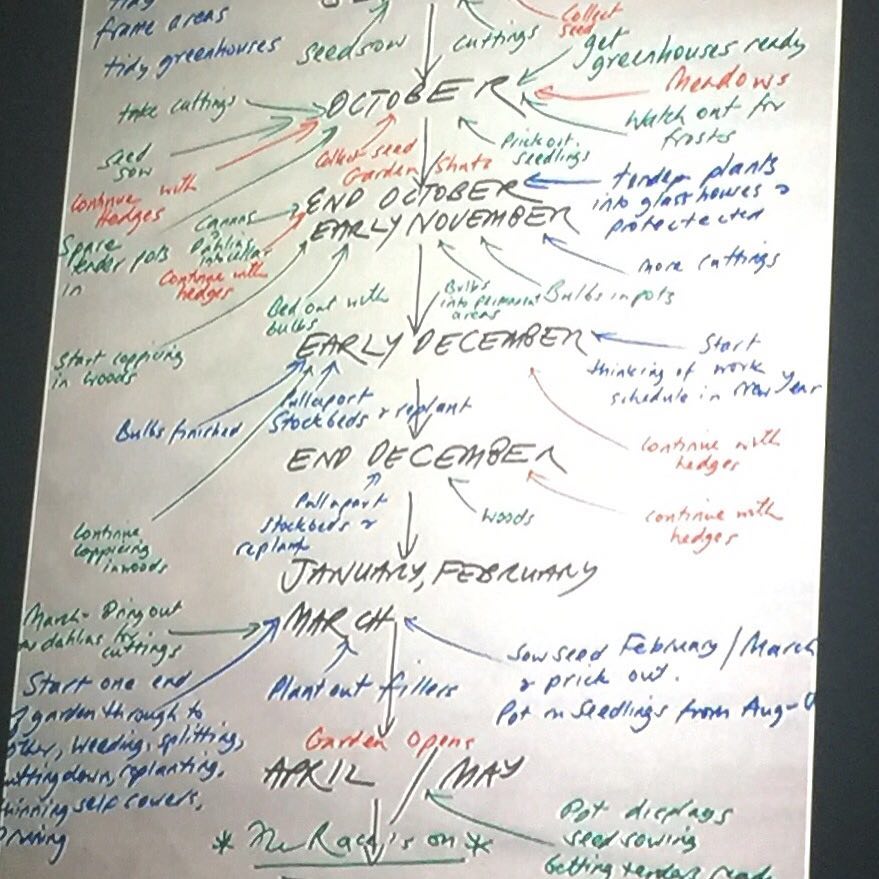 frame areas
tidy greenhouses
seed sow
cuttings
Collect
seed
get
greenhouses ready
take cuttings
OCTOBER
Meadows
Watch out for
frosts
Seed
sow
Continue with
Hedges
Collect seed
Garden Shuts
Prick out
seedlings
END OCTOBER
EARLY NOVEMBER
tender plants
into glass houses &
protected
Spare
tender pots
in
Cannas &
Dahlias
into cellar
Continue with
hedges
more cuttings
Bed out with
bulbs
Bulbs
into permanent
areas
Bulbs in pots
Start coppicing
in woods
EARLY DECEMBER
Start
thinking of work
schedule in New Year
Bulbs finished
Pull apart
Stockbeds & replant
Continue with
hedges
END DECEMBER
Pull apart
stockbeds &
replant
Woods
continue with
hedges
Continue
coppicing
in woods
JANUARY, FEBRUARY
MARCH
March- Bring out
dahlias for
cuttings
Sow seed February / March
& prick out.
Pot on Seedlings from Aug-
Plant out fillers
Start one end
garden through to
weeding, splitting,
cutting down, replanting,
thinning self sowers,
Garden Opens
APRIL / MAY
* The Race is on *
Pot displays
seed sowing
Getting tender ready